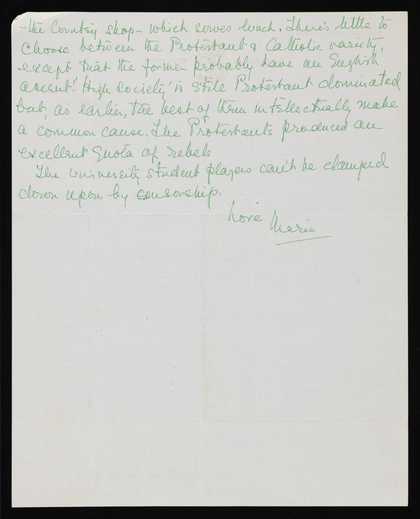 -the Country shop- which serves lunch. There's little to
choose between the Protestant & Catholic variety,
except that the former probably have an English
accent. 'High society' is still Protestant dominated
but, as earlier, the best of them intellectually make
a common cause. The Protestants produced an
excellent quota of rebels
The university student players can't be clamped
down upon by censorship.
Love Marie